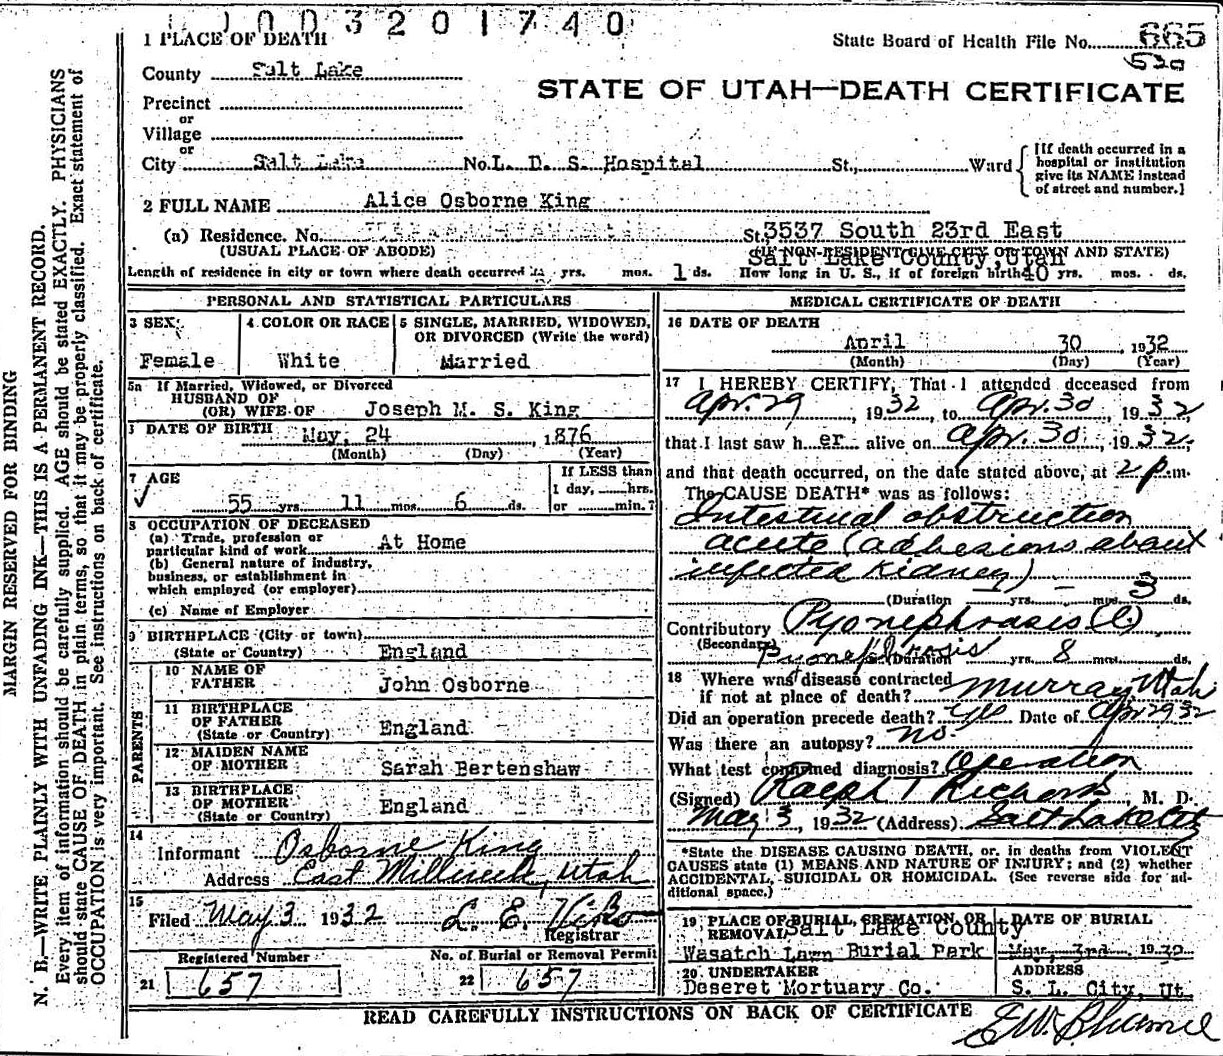 1003201740
1 PLACE OF DEATH
State Board of Health File No. 665
530
County Salt Lake
STATE OF UTAH—DEATH CERTIFICATE
Precinct
or
Village
or
City Salt Lake No. L. D. S. Hospital St., Ward
[If death occurred in a
hospital or institution
give its NAME instead
of street and number.]
2 FULL NAME Alice Osborne King
(a) Residence. No. St., 3537 South 23rd East
(USUAL PLACE OF ABODE) (IF NON-RESIDENT GIVE CITY OR TOWN AND STATE)
Salt Lake County, Utah
Length of residence in city or town where death occurred yrs. mos. 1 ds. How long in U. S., if of foreign birth 40 yrs. mos. ds.
PERSONAL AND STATISTICAL PARTICULARS
3 SEX
Female
4 COLOR OR RACE
White
5 SINGLE, MARRIED, WIDOWED,
OR DIVORCED (Write the word)
Married
5a If Married, Widowed, or Divorced
HUSBAND OF
(OR) WIFE OF Joseph M. S. King
DATE OF BIRTH May, 24, 1876
(Month) (Day) (Year)
7 AGE
55 yrs. 11 mos. 6 ds.
If LESS than
1 day, hrs.
or min.?
8 OCCUPATION OF DECEASED
(a) Trade, profession or
particular kind of work At Home
(b) General nature of industry,
business, or establishment in
which employed (or employer)
(c) Name of Employer
9 BIRTHPLACE (City or town)
(State or Country) England
PARENTS
10 NAME OF
FATHER John Osborne
11 BIRTHPLACE
OF FATHER
(State or Country) England
12 MAIDEN NAME
OF MOTHER Sarah Bertenshaw
13 BIRTHPLACE
OF MOTHER
(State or Country) England
14
Informant Osborne King
Address East Millcreek, Utah
15
Filed May 3 1932 L. E.
Registrar
Registered Number
21 657
No. of Burial or Removal Permit
22 657
MEDICAL CERTIFICATE OF DEATH
16 DATE OF DEATH
April 30, 1932
(Month) (Day) (Year)
17 I HEREBY CERTIFY, That I attended deceased from
Apr. 29, 1932, to Apr. 30, 1932
that I last saw her alive on Apr. 30, 1932,
and that death occurred, on the date stated above, at 2 p.m.
The CAUSE DEATH* was as follows:
Intestinal obstruction
acute (adhesions about
infected kidney)
(Duration — yrs. — mos. 3 ds.
Contributory Pyonephrosis (L)
(Secondary) Pyonephrosis
Duration yrs. 8 mos. ds.
18 Where was disease contracted
if not at place of death? Murray, Utah
Did an operation precede death? yes Date of Apr 29 32
Was there an autopsy? no
What test confirmed diagnosis? Operation
(Signed) Ralph T Richards M. D.
May 3, 1932 (Address) Salt Lake City
*State the DISEASE CAUSING DEATH, or, in deaths from VIOLENT
CAUSES state (1) MEANS AND NATURE OF INJURY; and (2) whether
ACCIDENTAL, SUICIDAL OR HOMICIDAL. (See reverse side for ad-
ditional space.)
19 PLACE OF BURIAL, CREMATION, OR
REMOVAL Salt Lake County
Wasatch Lawn Burial Park
DATE OF BURIAL
May, 3rd, 1932
20 UNDERTAKER
Deseret Mortuary Co.
ADDRESS
S. L. City, Ut.
READ CAREFULLY INSTRUCTIONS ON BACK OF CERTIFICATE
MARGIN RESERVED FOR BINDING
N. B.—WRITE PLAINLY WITH UNFADING INK—THIS IS A PERMANENT RECORD.
Every item of information should be carefully supplied. AGE should be stated EXACTLY. PHYSICIANS
should state CAUSE OF DEATH in plain terms, so that it may be properly classified. Exact statement of
OCCUPATION is very important. See instructions on back of certificate.